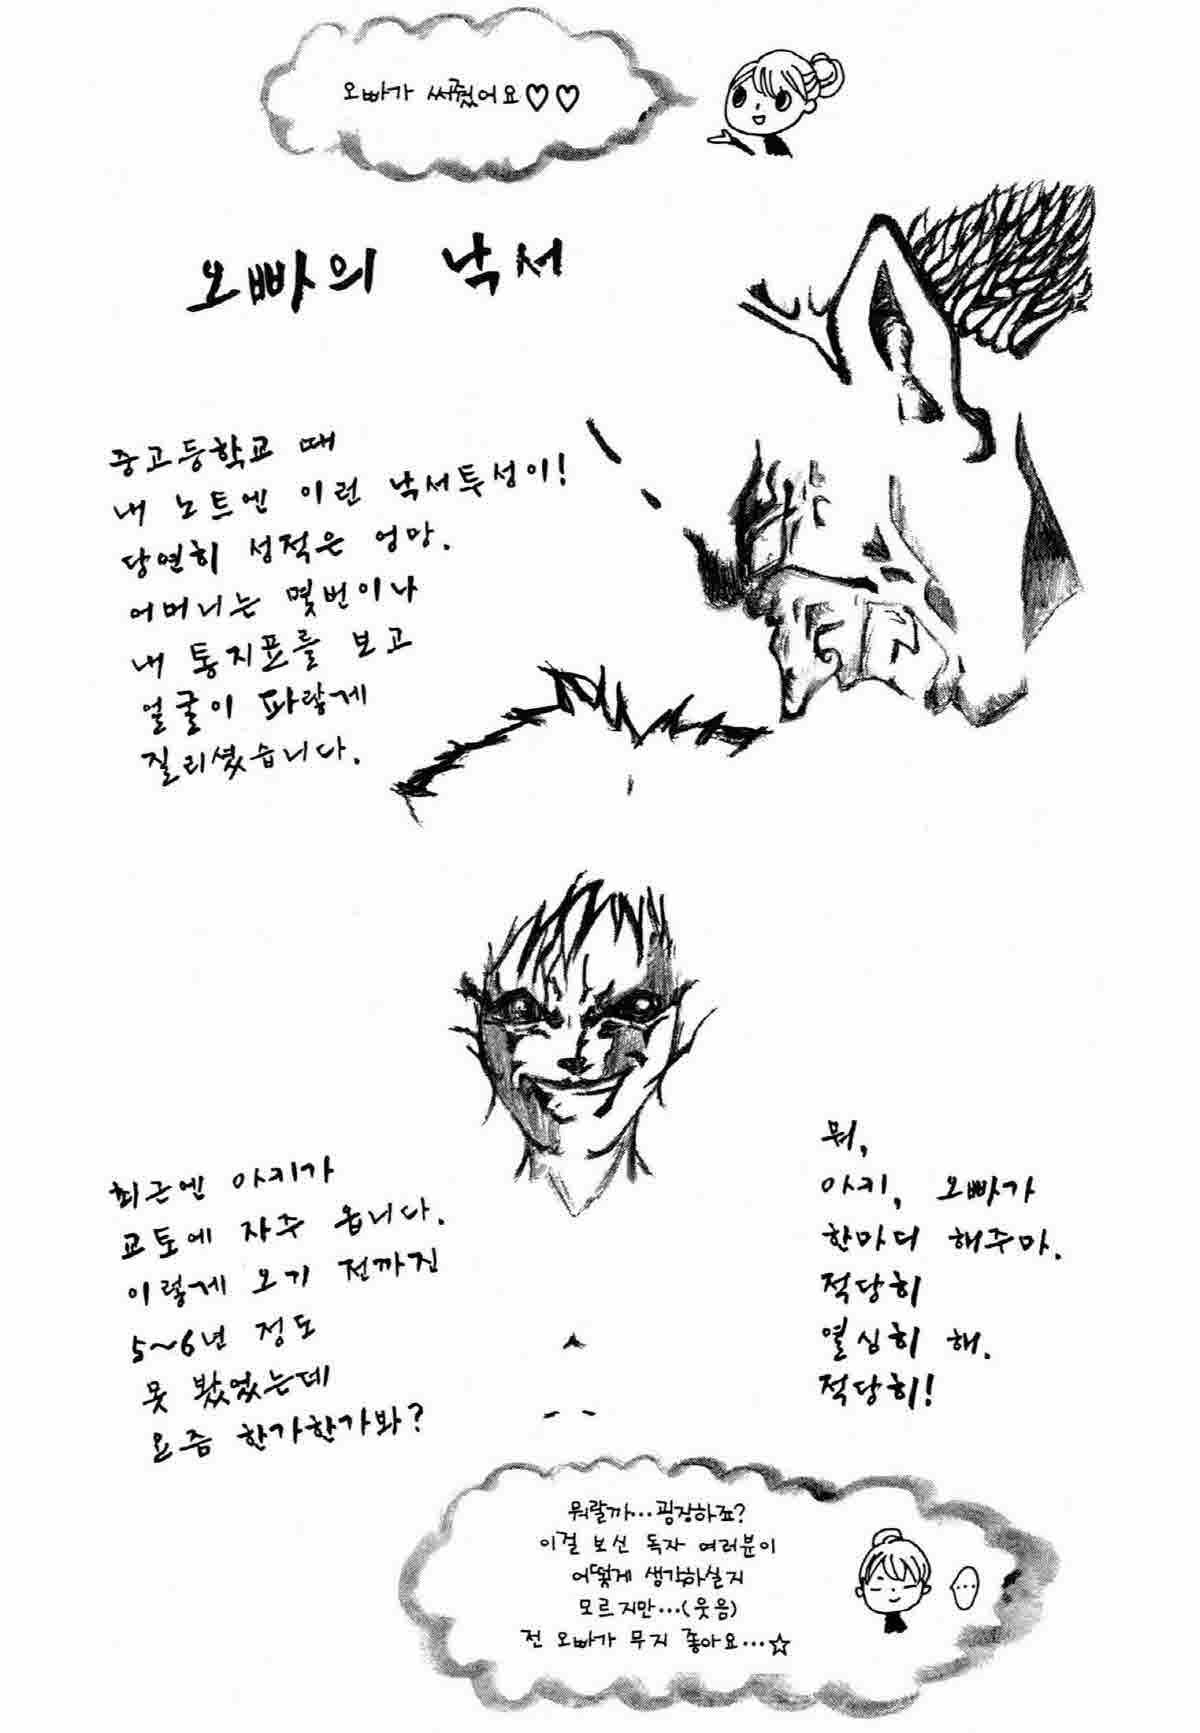 오빠가 써줬어요♡♡
오빠의 낙서
중고등학교 때
내 노트엔 이런 낙서투성이!
당연히 성적은 엉망.
어머니는 몇번이나
내 통지표를 보고
얼굴이 파랗게
질리셨습니다.
최근엔 아키가
교토에 자주 옵니다.
이렇게 오기 전까진
5~6년 정도
못 봤었는데
요즘 한가한가봐?
뭐,
아키, 오빠가
한마디 해주마.
적당히
열심히 해.
적당히!
뭐랄까…굉장하죠?
이걸 보신 독자 여러분이
어떻게 생각하실지
모르지만…(웃음)
전 오빠가 무지 좋아요…☆
…